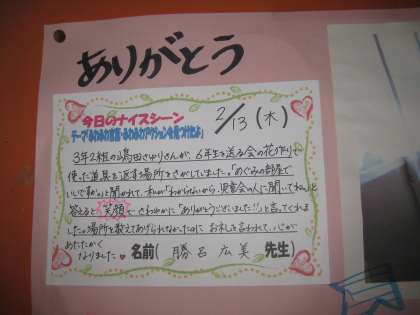 ありがとう
今日のナイスシーン
2/13(木)
テーマ「あたたかい言葉・あたたかいアクションを見つけたよ」
3年2組の嶋田さゆりさんが、6年生を送る会の花作りで
使った道具を返す場所をさがしていました。「めぐみの部屋で
いいですか。」と聞かれて、私が「わからないから、児童会の人に聞いてね。」と
答えると笑顔でさわやかに「ありがとうございました!!」と言ってくれま
した。場所を教えてあげられなかったのに、お礼を言われて、心が
あたたかく
なりました。 名前( 勝呂広美 先生)